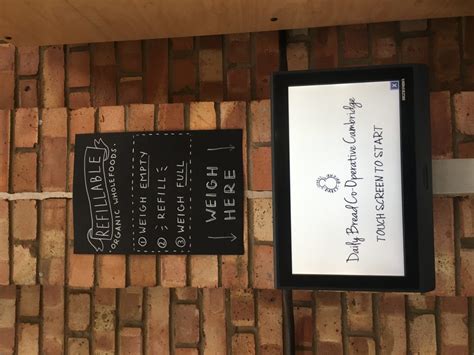 REFILLABLE
ORGANIC WHOLEFOODS.
① WEIGH EMPTY
② REFILL
③ WEIGH FULL
WEIGH
HERE
Daily Bread Co-Operative Cambridge
TOUCH SCREEN TO START
X